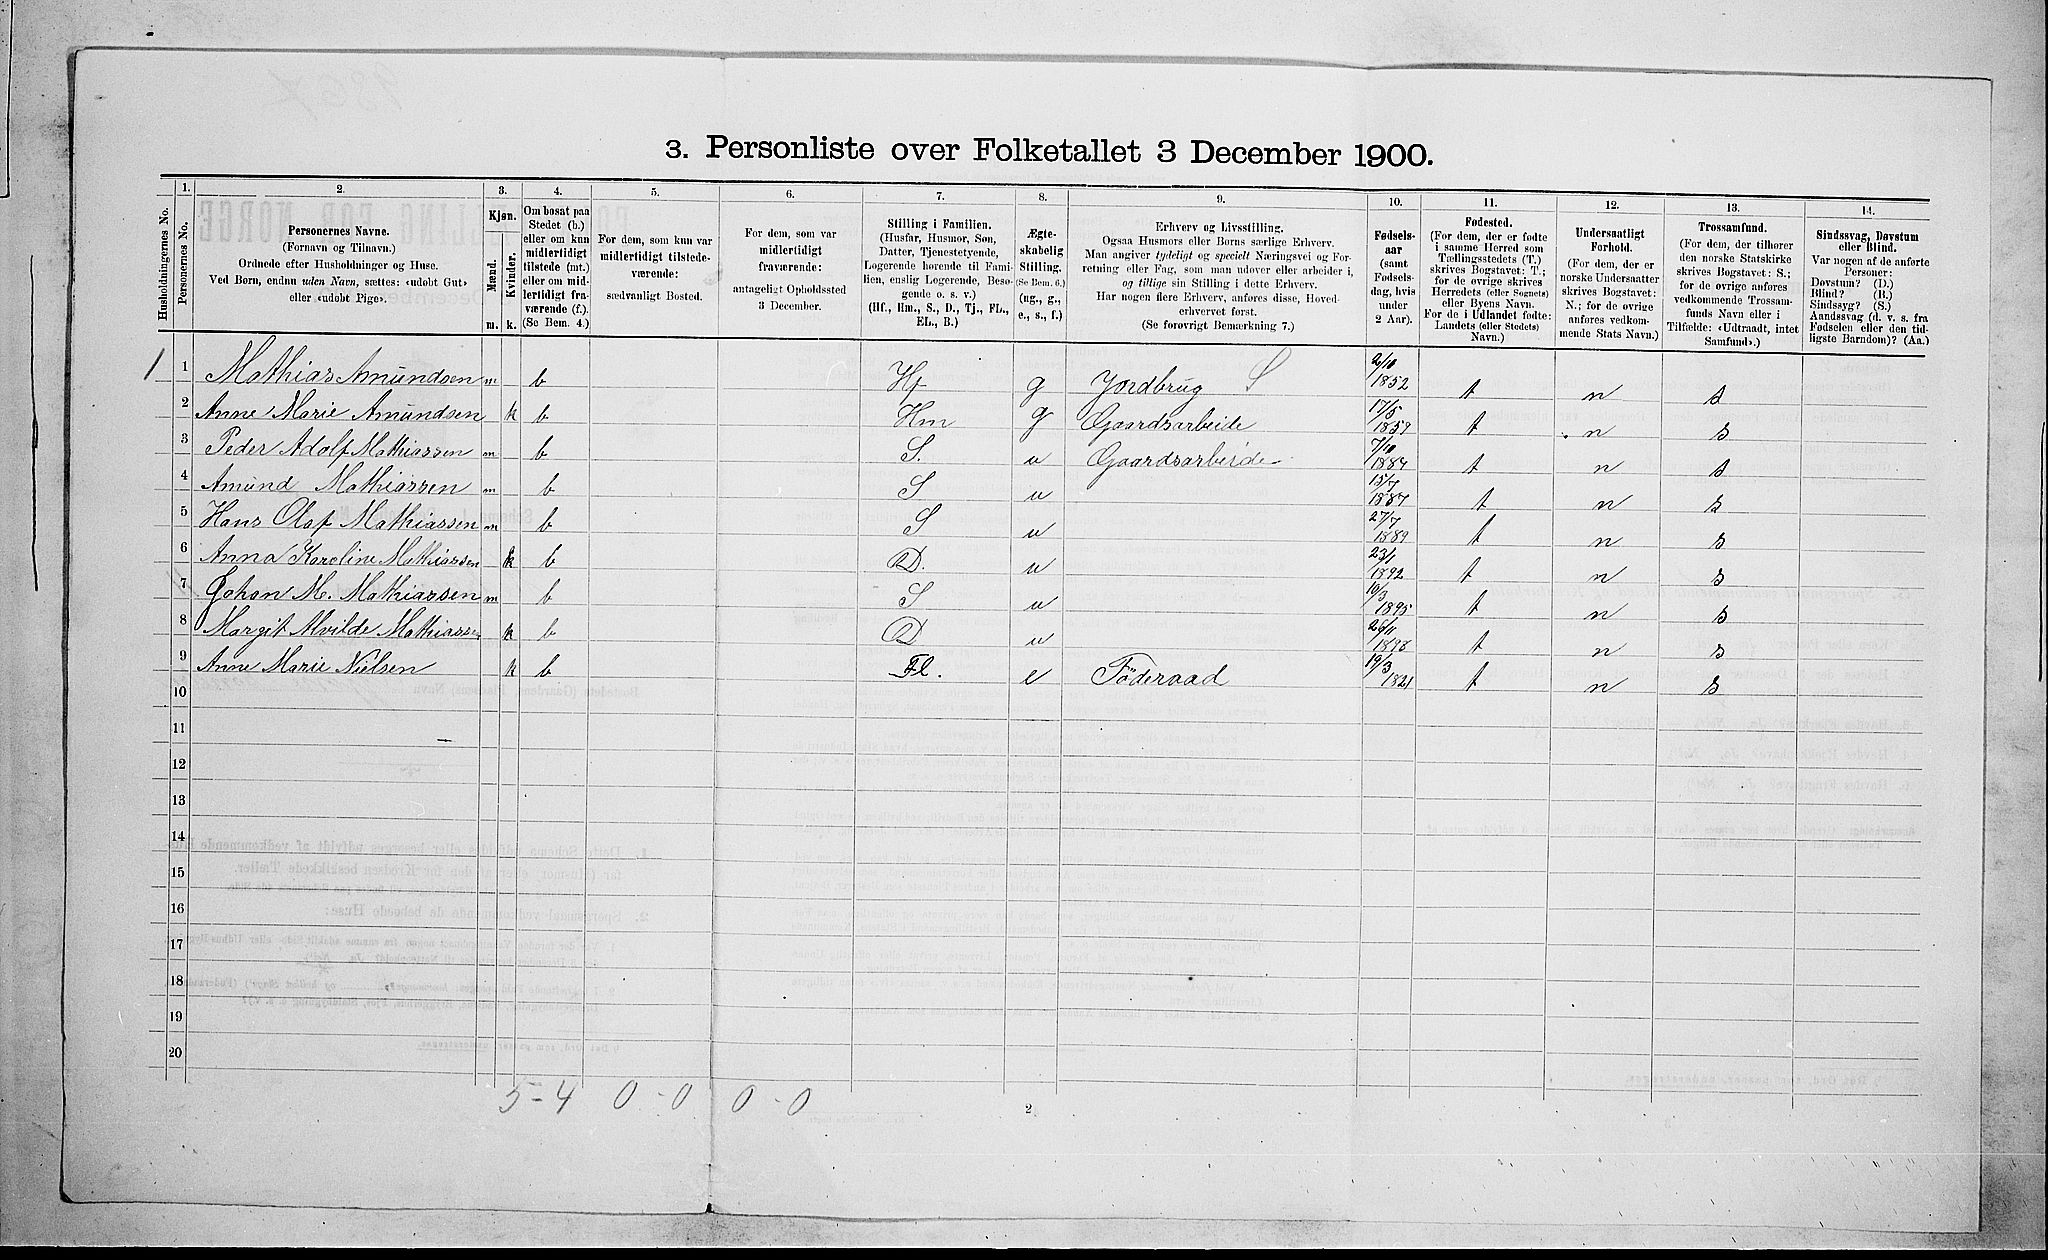 3. Personliste over Folketallet 3 December 1900.
Husholdningernes No.
1.
Personernes No.
2.
Personernes Navne.
(Fornavn og Tilnavn.)
Ordnede efter Husholdninger og Huse.
Ved Børn, endnu uden Navn, sættes: «udøbt Gut»
eller «udøbt Pige».
3.
Kjøn.
Mænd.
Kvinder.
m. k.
4.
Om bosat paa
Stedet (b.)
eller om kun
midlertidigt
tilstede (mt.)
eller om mid-
lertidigt fra-
værende (f.).
(Se Bem. 4.)
5.
For dem, som kun var
midlertidigt tilstede-
værende:
sædvanligt Bosted.
6.
For dem, som var
midlertidigt
fraværende:
antageligt Opholdssted
3 December.
7.
Stilling i Familien.
(Husfar, Husmor, Søn,
Datter, Tjenestetyende,
Logerende hørende til Fami-
lien, enslig Logerende, Besø-
gende o. s. v.)
(Hf., Hm., S., D., Tj., FL.,
EL., B.)
8.
Ægte-
skabelig
Stilling.
(Se Bem. 6.)
(ug., g.,
e., s., f.)
9.
Erhverv og Livsstilling.
Ogsaa Husmors eller Børns særlige Erhverv.
Man angiver tydeligt og specielt Næringsvei og For-
retning eller Fag, som man udøver eller arbeider i,
og tillige sin Stilling i dette Erhverv.
Har nogen flere Erhverv, anføres disse, Hoved-
erhvervet først.
(Se forøvrigt Bemærkning 7.)
10.
Fødsels-
aar
(samt
Fødsels-
dag, hvis
under
2 Aar).
11.
Fødested.
(For dem, der er fødte
i samme Herred som
Tællingsstedets (T.)
skrives Bogstavet: T.;
for de øvrige skrives
Herredets (eller Sognets)
eller Byens Navn.
For de i Udlandet fødte:
Landets (eller Stedets)
Navn.)
12.
Undersaatligt
Forhold.
(For dem, der er
norske Undersaatter
skrives Bogstavet:
N.; for de øvrige
anføres vedkom-
mende Stats Navn.)
13.
Trossamfund.
(For dem, der tilhører
den norske Statskirke
skrives Bogstavet: S.;
for de øvrige anføres
vedkommende Trossam-
funds Navn eller i
Tilfælde: «Udtraadt, intet
Samfund».)
14.
Sindssvag, Døvstum
eller Blind.
Var nogen af de anførte
Personer:
Døvstum? (D.)
Blind? (B.)
Sindssyg? (S.)
Aandssvag (d. v. s. fra
Fødselen eller den tid-
ligste Barndom)? (Aa.)
1 1 Mathias Amundsen m b Hf g Jordbrug S 2/10 1852 t n s
2 Anne Marie Amundsen k b Hm g Gaardsarbeide 17/5 1859 t n s
3 Peder Adolf Mathiassen m b S. u Gaardsarbeide 7/10 1884 t n s
4 Amund Mathiassen m b S u 15/7 1887 t n s
5 Hans Olaf Mathiassen m b S u 27/7 1889 t n s
6 Anna Karoline Mathiassen k b D. u 23/1 1892 t n s
7 Johan M. Mathiassen m b S u 10/3 1895 t n s
8 Margit Alvilde Mathiassen k b D u 26/11 1898 t n s
9 Anne Marie Nielsen k b Fl. e Föderaad 19/3 1821 t n s
10
11
12
13
14
15
16
17
18
19
20
5 - 4 0 - 0 0 - 0
2